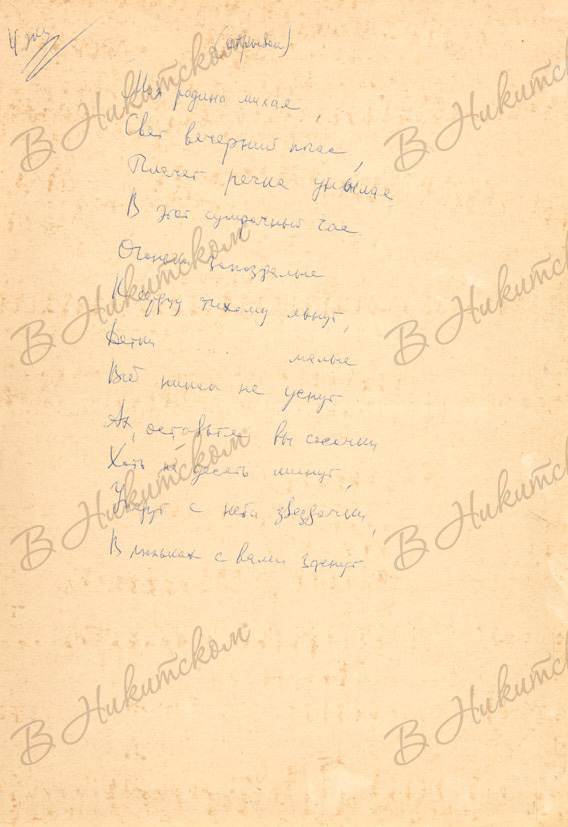 4 экз
(отрывок)
Моя родина милая,
Свет вечерний погас,
Плачет речка унылая
В этот сумрачный час.
Огоньки запоздалые
К сердцу тихому льнут,
Детки малые
Всё никак не уснут.
Ах, оставьте вы сосочки
Хоть на десять минут,
Упадут с неба звездочки,
В люльках с вами заснут
В Никитском
В Никитском
В Никитском
В Никитском
В Никитском
В Никитском
В Никитском
В Никитском